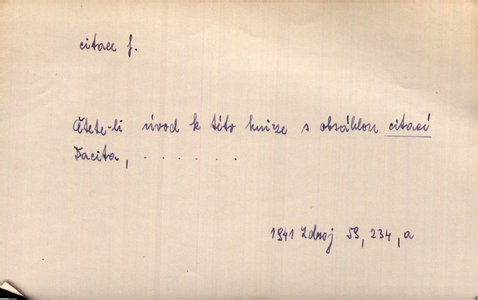 citace f.
Čtete-li úvod k této knize s obsáhlou citací
Tacita, . . . . . . .
1941 Zdroj 59, 234, a